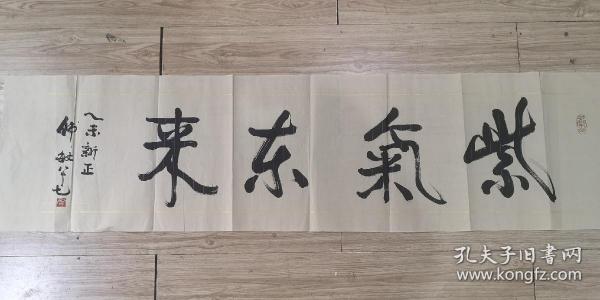 紫氣东来
乙未新正
孔夫子旧书网
www.kongfz.com